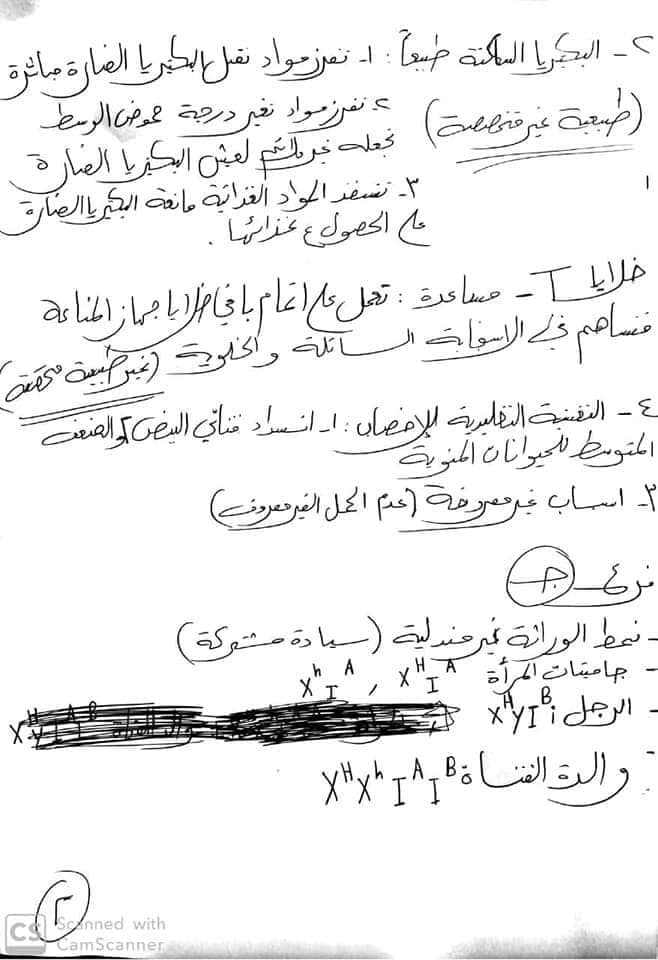 ٢- البكتريا الساكنة طبيعاً : ١- تفرز مواد تقتل البكتيريا الضارة مباشرة
(طبيعية غير متخصصة) ٢- تفرز مواد تغير درجة حموض الوسط
تجعله غير ملائم لعيش البكتيريا الضارة
٣- تستنفد المواد الغذائية مانعة البكتيريا الضارة
١
على الحصول ع غذائها.
خلايا T - مساعدة : تعمل على اتمام باقي خلايا جهاز المناعة
فتساهم في الاستجابة السائلة والخلوية (غير طبيعية متخصصة)
٤- التقنية التقليدية للإخصاب : ١- انسداد قناتي البيض ٢- الضعف
المتوسط للحيوانات المنوية
٣- اسباب غير معروفة (عدم الحمل الغير معروف)
فرع - ج
- نمط الوراثة غير مندلية (سيادة مشتركة)
- جاميتات المرأة X^H I^A , X^h I^A
- الرجل X^H Y I^B i
- والدة الفتاة X^H X^h I^A I^B
٢
CS Scanned with
CamScanner